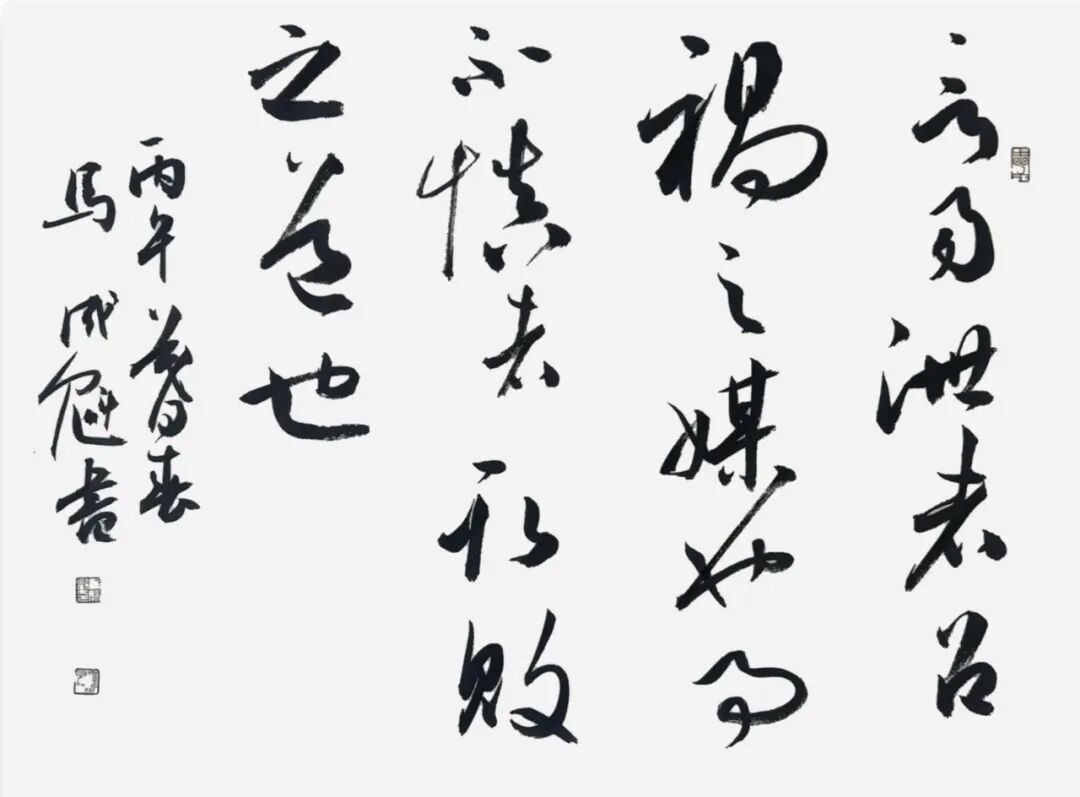 言易泄者召
禍之媒也事
不慎者取敗
之道也
丙午暮春
馬成魁書